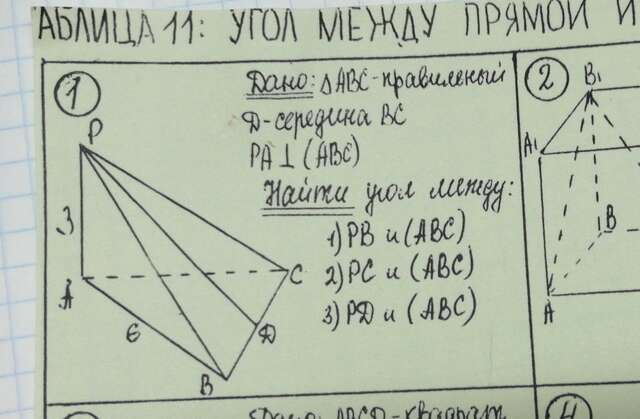 АБЛИЦА 11: УГОЛ МЕЖДУ ПРЯМОЙ И
1
Дано: ΔABC-правильный
D-середина BC
PA⊥(ABC)
Найти угол между:
1) PB и (ABC)
2) PC и (ABC)
3) PD и (ABC)
P
3
A
6
B
D
C
2
B₁
A₁
B
A
Дано: ABCD-квадрат
4